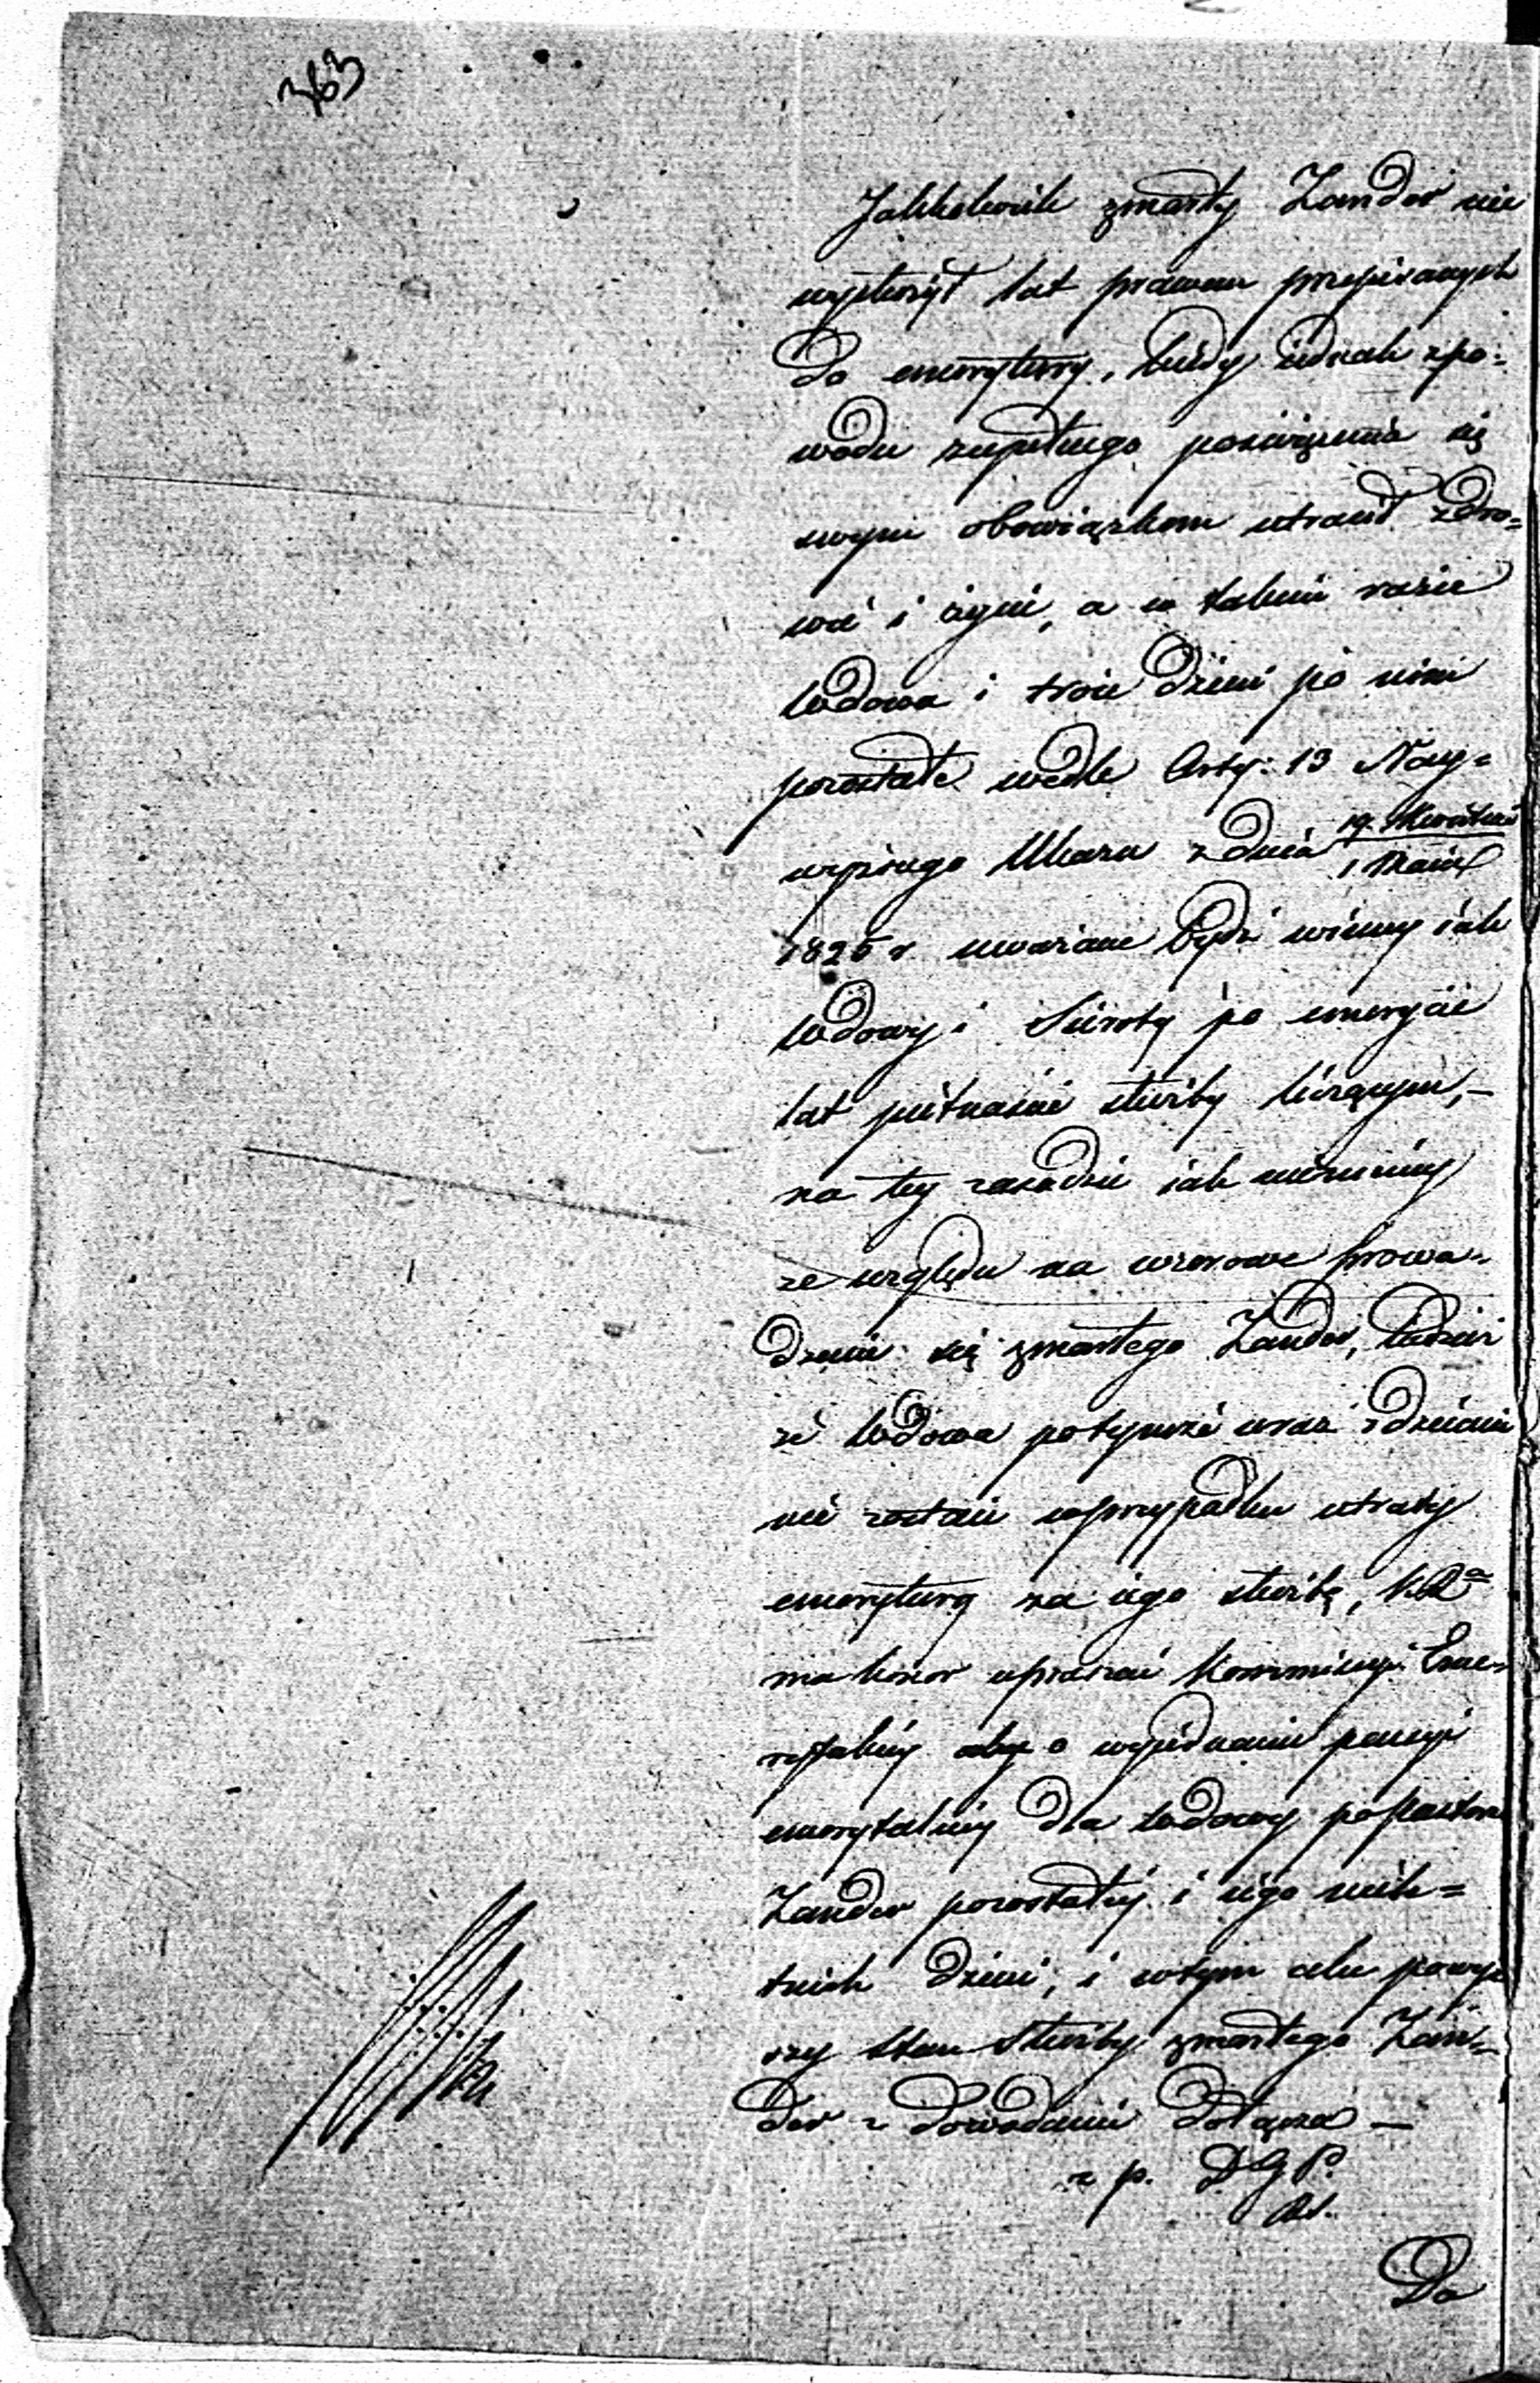 363
Jakkolwiek zmarły Zander nie
wysłużył lat prawem przepisanych
do emerytury, kiedy iednak zpo-
wodu zupełnego poświęcenia się
swym obowiązkom utracił zdro-
wie i życie, a w takim razie
wdowa i troie dzieci po nim
pozostałe wedle Arty: 13 Nay-
wyższego Ukazu z dnia 19 Kwietnia
1 Maia
1825 r uważane bydź winny iak
wdowy i Sieroty po emerycie
lat piętnaście służby liczącym, –
na tey zasadzie iak niemniey
ze względu na wzorowe prowa-
dzenie się zmarłego Zander, tudzież
że wdowa potymże wraz z dziećmi
nie zostaie w przypadku utraty
emerytury za iego służbę, KRa
ma honor upraszać Kommissyi Eme-
rytalney aby o wyiednanie pensyi
emerytalney dla wdowy po Pastorze
Zander pozostałey i iego nielet-
nich dzieci, i w tym celu powyż
szy stan służby zmarłego Zan-
der z dowodami dołącza –
z p. D G P.
Do